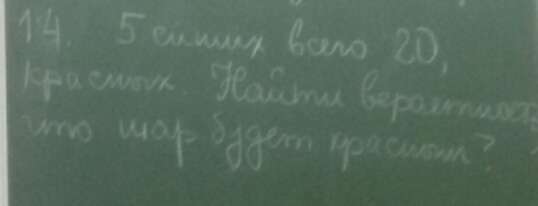 14. 5 синих всего 20,
красных. Найти вероятность,
что шар будет красным?